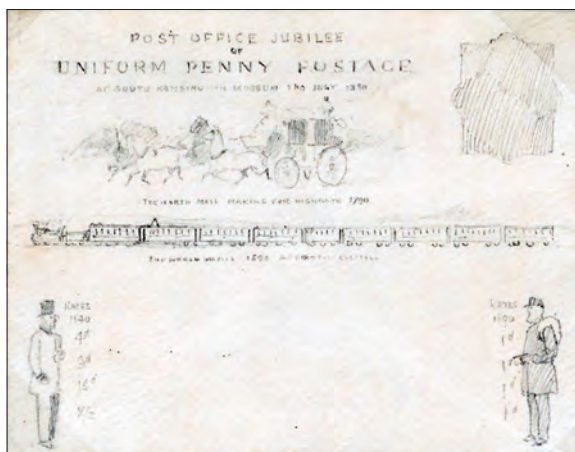 POST OFFICE JUBILEE
OF
UNIFORM PENNY POSTAGE
AT SOUTH KENSINGTON MUSEUM 2ND JULY 1890
THE NORTH MAIL MAKING FOR HIGHGATE 1790
THE NORTH MAIL 1890
RATES
1840
4d
RATES
1890
1d
1d
1d
1d